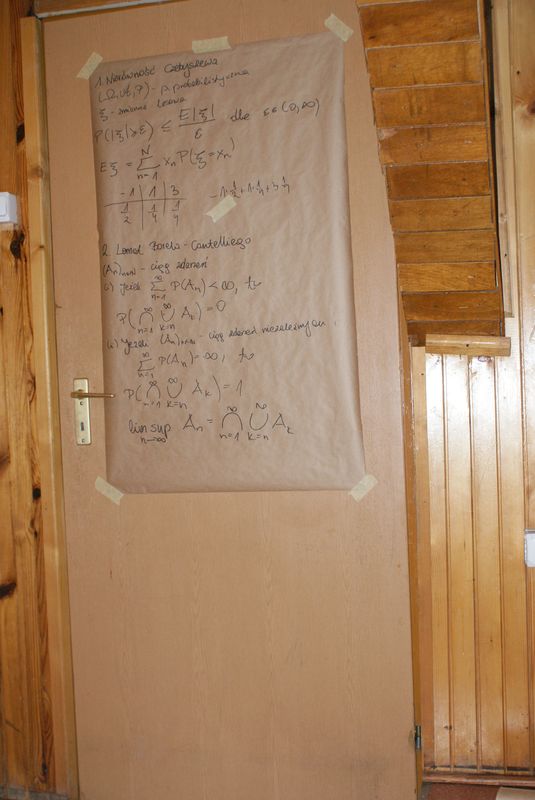 1. Nierówność Czebyszewa
(Ω, 𝒜, P) - p. probabilistyczna
ξ - zmienna losowa
P(|ξ| ≥ ε) ≤ E|ξ| / ε dla ε ∈ (0, ∞)
Eξ = ∑_{n=1}^{N} x_n P(ξ = x_n)
-1 | 1 | 3
1/2 | 1/4 | 1/4
-1·1/2 + 1·1/4 + 3·1/4
2. Lemat Borela - Cantelliego
(A_n)_{n∈N} - ciąg zdarzeń
(i) Jeżeli ∑_{n=1}^{∞} P(A_n) < ∞, to
P(⋂_{n=1}^{∞} ⋃_{k=n}^{∞} A_k) = 0
(ii) Jeżeli (A_n)_{n∈N} - ciąg zdarzeń niezależnych i
∑_{n=1}^{∞} P(A_n) = ∞, to
P(⋂_{n=1}^{∞} ⋃_{k=n}^{∞} A_k) = 1
lim sup_{n→∞} A_n = ⋂_{n=1}^{∞} ⋃_{k=n}^{∞} A_k